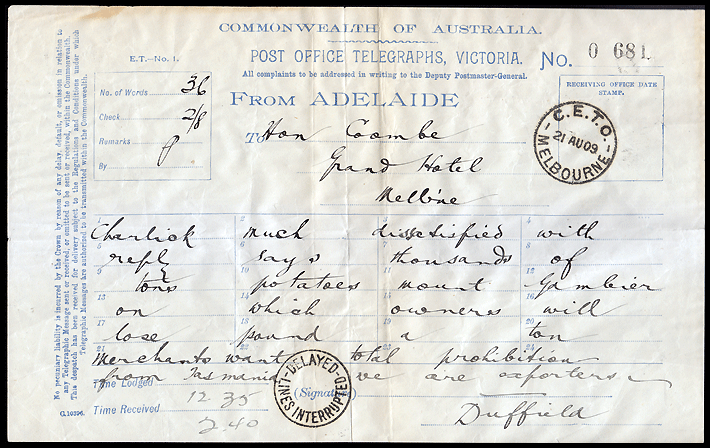 COMMONWEALTH OF AUSTRALIA.
POST OFFICE TELEGRAPHS, VICTORIA.
No. 0 681
All complaints to be addressed in writing to the Deputy Postmaster-General.
E.T.—No. 1.
No. of Words 36
Check 2/8
Remarks
By
FROM ADELAIDE
RECEIVING OFFICE DATE STAMP.
C.E.T.O.
21 AU 09
MELBOURNE
To Hon Coombe
Grand Hotel
Melb'ne
1 2 3 4
Charlick much dissatisfied with
5 6 7 8
reply says thousands of
9 10 11 12
tons potatoes mount Gambier
13 14 15 16
on which owneres will
17 18 19 20
lose pound a ton
21
merchants want total prohibition
from Tasmania we are exporters
Time Lodged 12 35
(Signature)
Time Received 2.40
Duffield
DELAYED
LINES INTERRUPTED
G.10396.
No pecuniary liability is incurred by the Crown by reason of any delay, default, or omission in relation to
any Telegraphic Message sent or received, or omitted to be sent or received, within the Commonwealth.
This despatch has been received for delivery subject to the Regulations and Conditions under which
Telegraphic Messages are authorized to be transmitted within the Commonwealth.